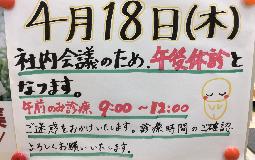 4月18日(木)
社内会議のため、午後休診と
なります。
午前のみ診療 9:00～12:00
ご迷惑をおかけいたします。診療時間のご確認、
よろしくお願いいたします。